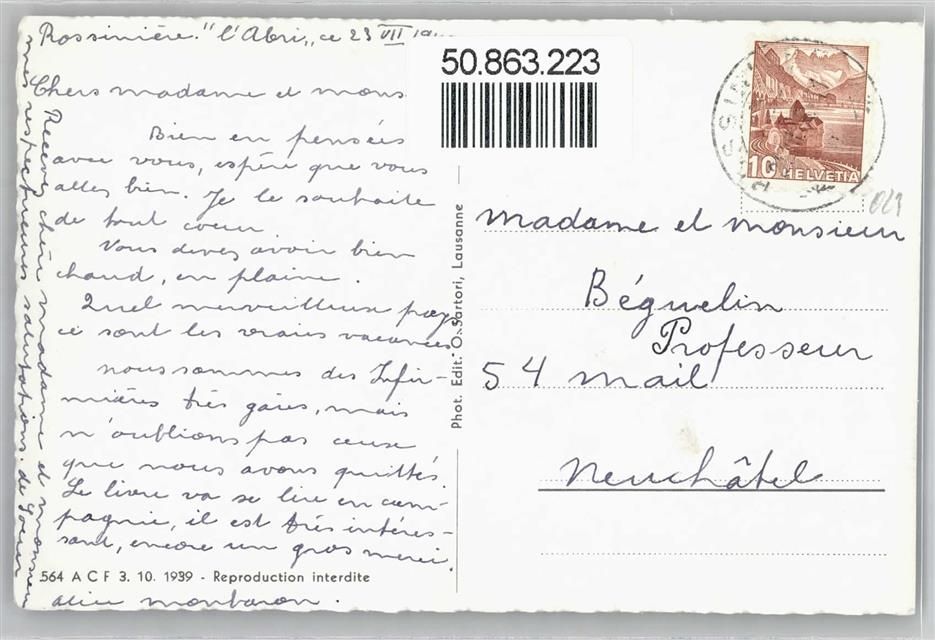 Rossinière. "l'Abri„ ce 23 VII 19
Chers madame et mons
Bien en pensées
avec vous, espère que vous
allez bien. Je le souhaite
de tout coeur.
Vous devez avoir bien
chaud, en plaine.
Quel merveilleux pays
ce sont les vraies vacances
nous sommes des Infir-
mières très gaies, mais
n'oublions pas ceuse
que nous avons quittés.
Le livre va se lire en com-
pagnie, il est très intéres-
sant, encore un gros merci.
Recevez chère madame et monsieur
mes respectueuses salutations. de Soeur
alice monbaron.
564 A C F 3. 10. 1939 - Reproduction interdite
Phot. Edit. O. Sartori, Lausanne
50.863.223
10 HELVETIA
029
madame et monsieur
Béguelin
Professeur
54 mail
Neuchâtel